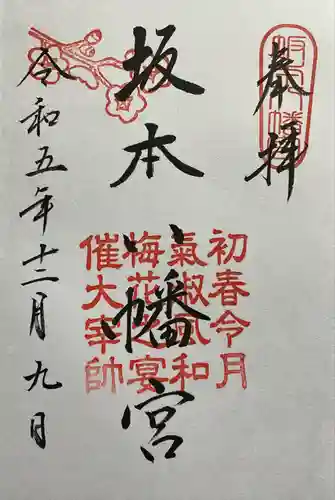 奉拝
坂本八幡
坂本八幡宮
初春令月
氣淑風和
梅花之宴
催大宰帥
令和五年十二月九日